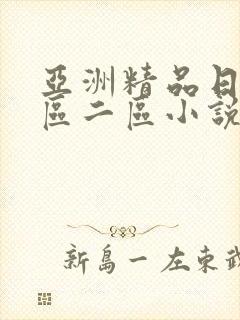 亞洲精品日
區二區小說
新島一 左東武